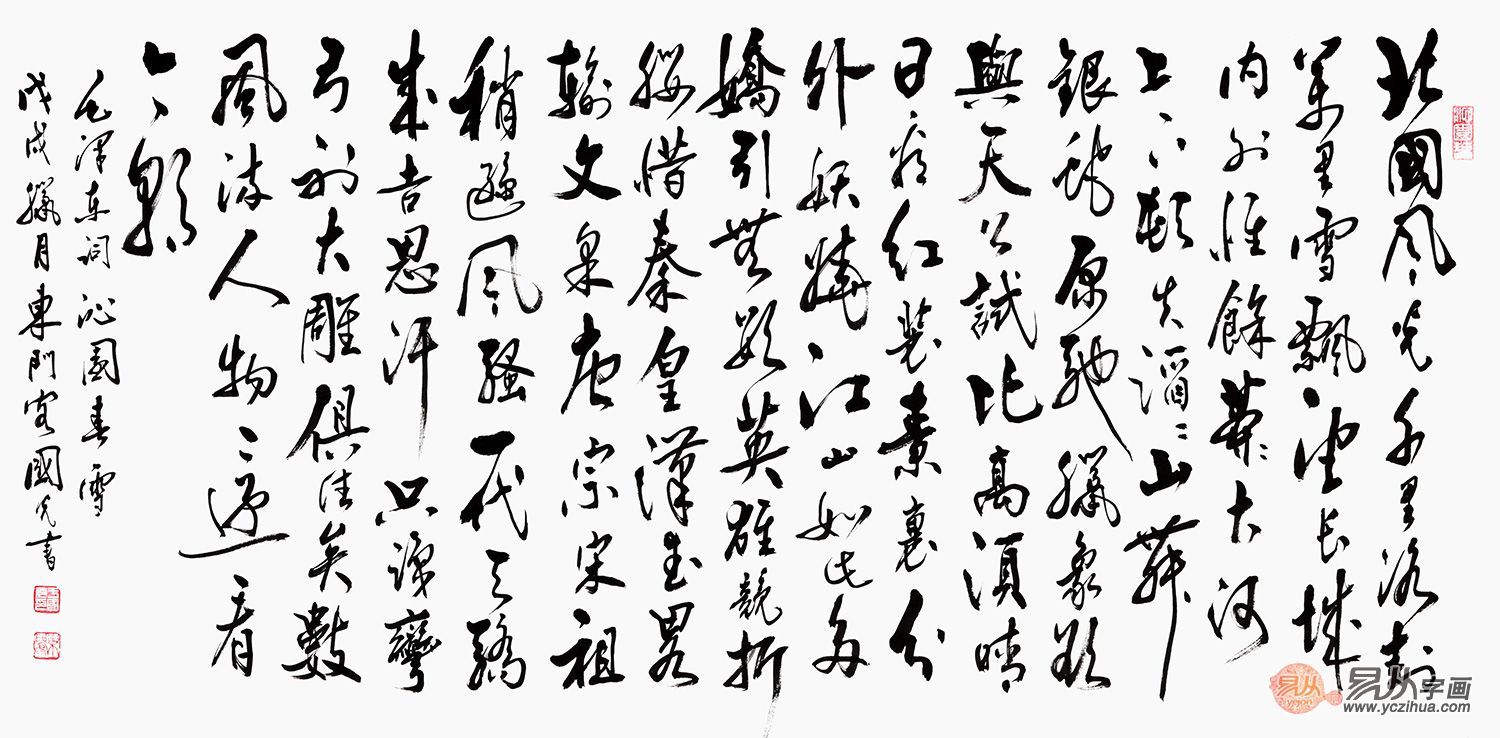 北國风光千里冰封
萬里雪飄望长城
内外惟餘莽〻大河
上下頓失滔〻山舞
銀蛇原驰臘象欲
與天公試比高須晴
日看红装素裹分
外妖娆江山如此多
嬌引無數英雄競折
腰惜秦皇漢武略
輸文采唐宗宋祖
稍逊风騷一代天骄
成吉思汗只識彎
弓射大雕俱往矣數
風流人物還看
今朝
毛澤东词沁園春雪
戊戌臘月東門客國光書
易从字画
www.yczihua.com